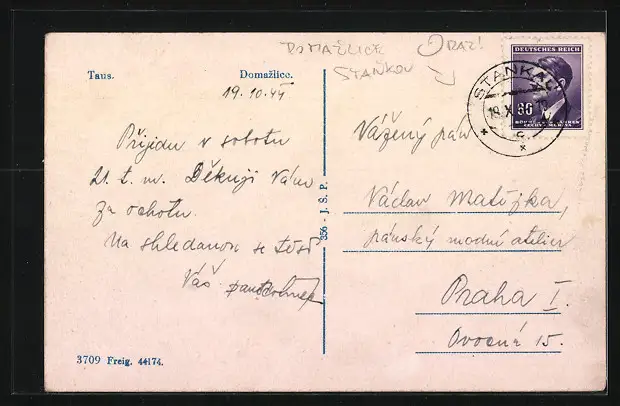 DOMAŽLICE ORAZ!
STAŇKOV
Taus. Domažlice.
19.10.44
Přijedu v sobotu
21. t. m. Děkuji Vám
za ochotu.
Na shledanou se těší
Váš
3709 Freig. 44174.
356 - J. S. P.
DEUTSCHES REICH
60
BÖHMEN UND MÄHREN
ČECHY A MORAVA
STANKAU
Vážený pán
Václav Matějka,
pánský modní atelier
Praha I.
Ovocná 15.